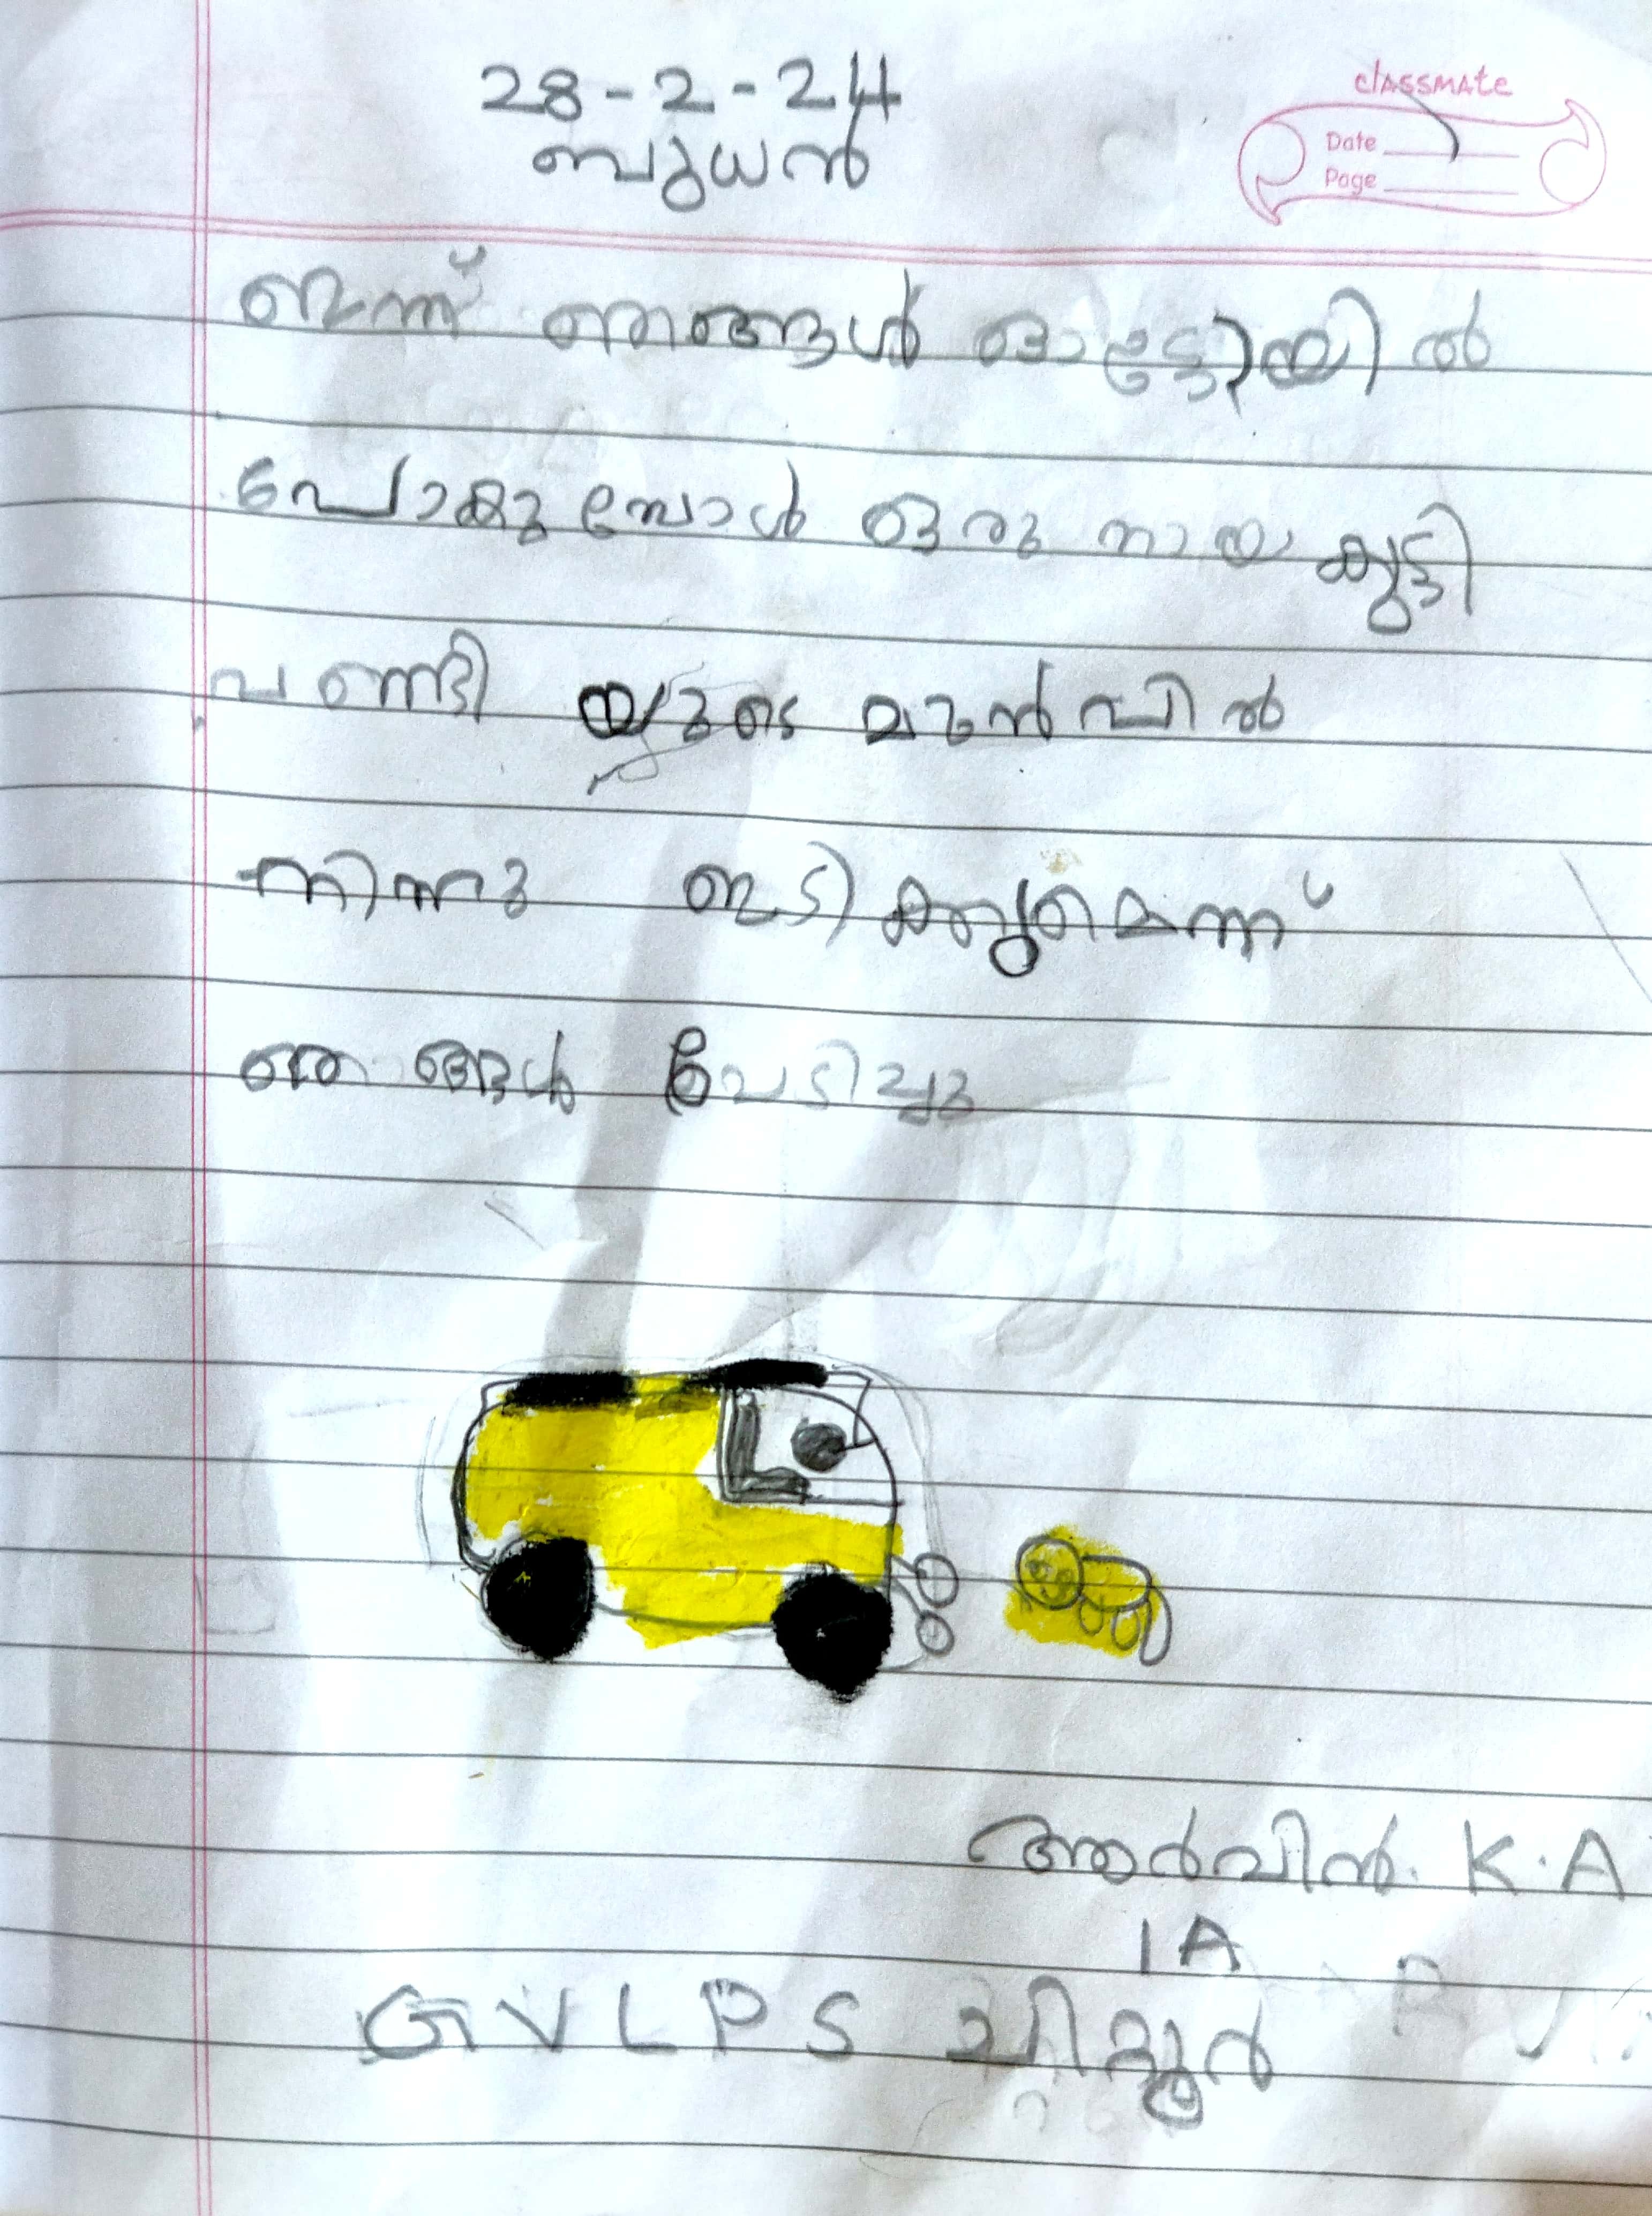 28-2-24
ബുധൻ
classmate
Date
Page
ഇന്ന് ഞങ്ങൾ ഓട്ടോയിൽ
പോകുമ്പോൾ ഒരു നായകുട്ടി
വണ്ടിയുടെ മുൻപിൽ
നിന്നു ഇടിക്കുമെന്ന്
ഞങ്ങൾ പേടിച്ചു
ആർവിൻ. K.A
1A
GVLPS ചിറ്റൂർ